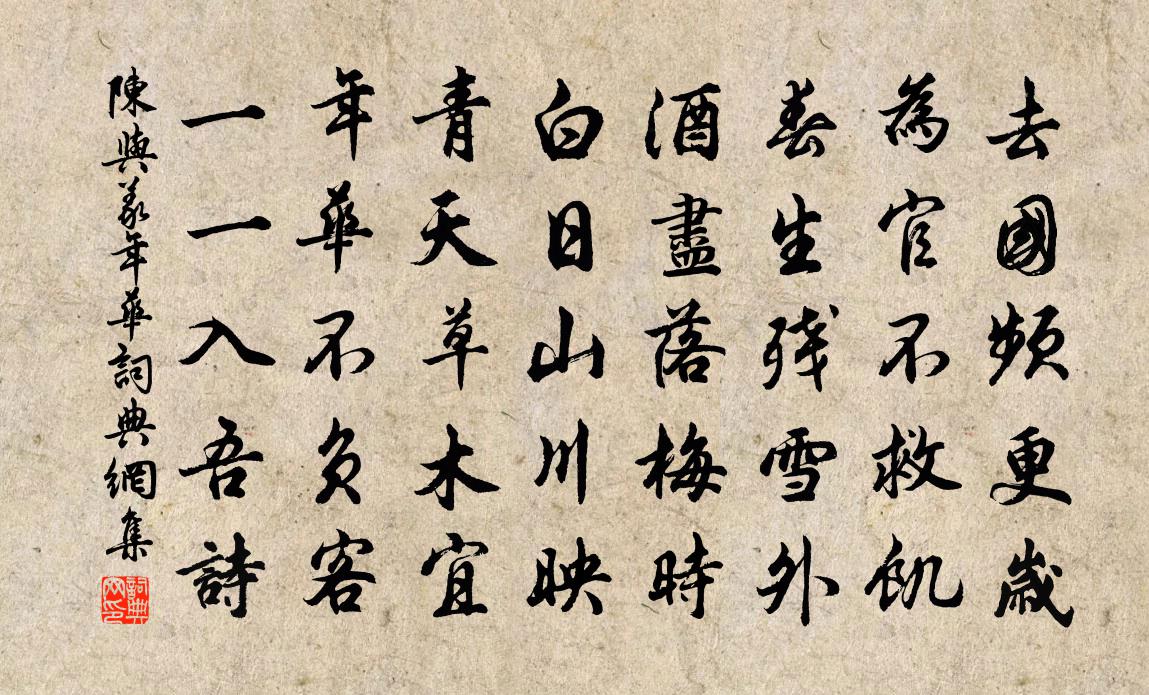 去國頻更歲
為官不救飢
春生殘雪外
酒盡落梅時
白日山川映
青天草木宜
年華不負客
一一入吾詩
陳與義年華詞典網集
詞典
网印